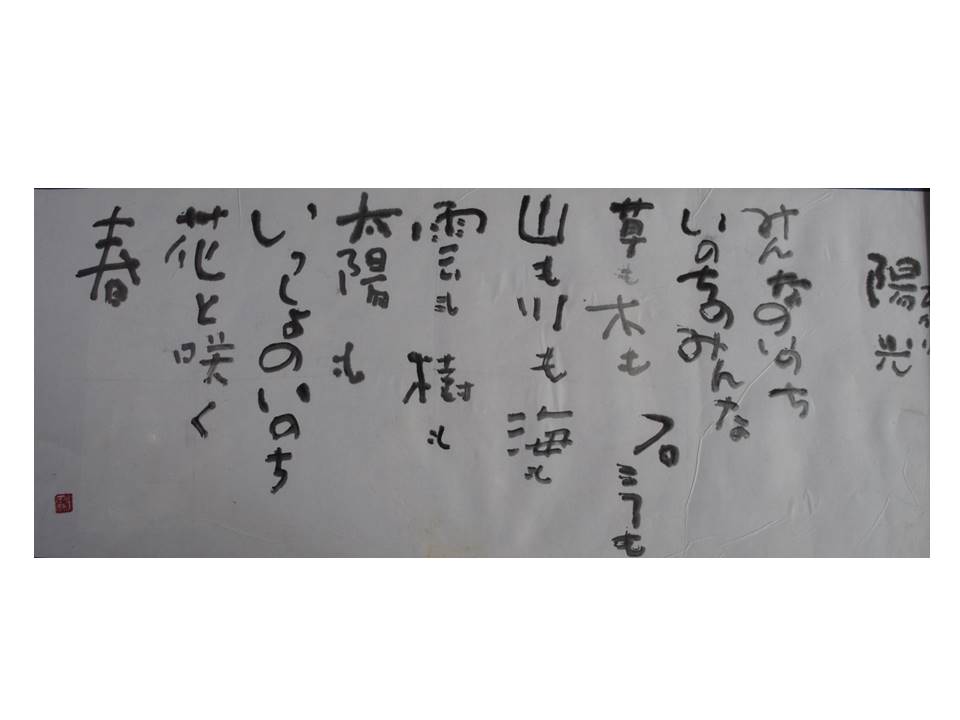 陽光
ひかり
みんなのいのち
いのちのみんな
草も木も 石ころも
山も川も 海も
雲も 樹も
太陽も
いっしょのいのち
花と咲く
春